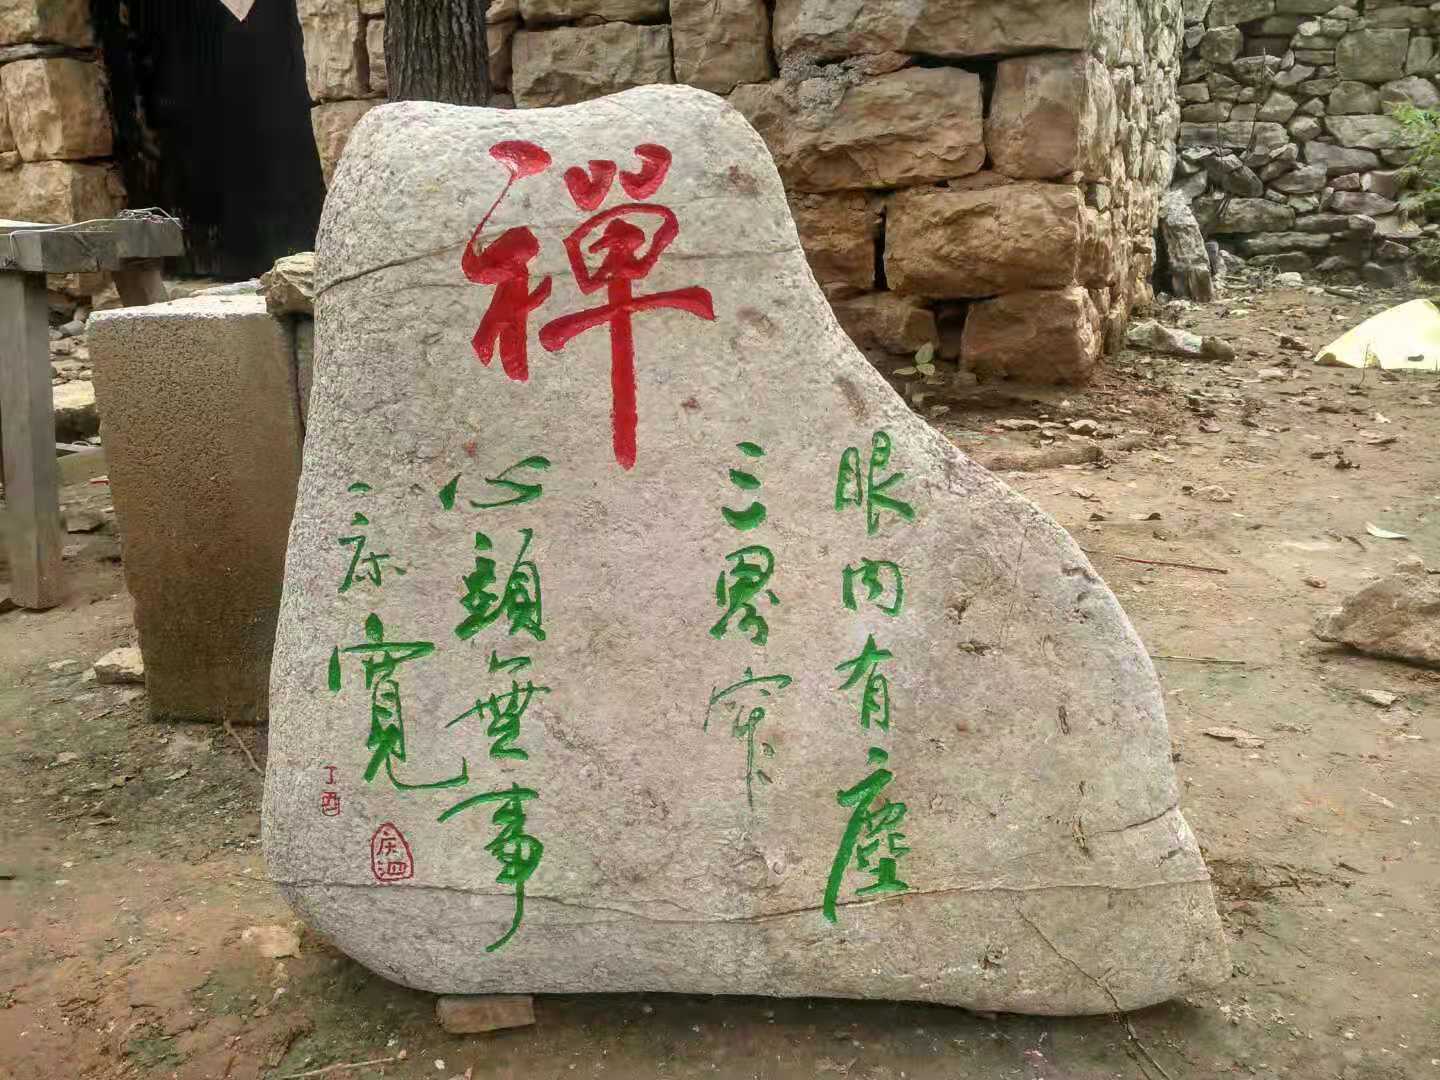 禪
眼内有塵
三界窄
心頭無事
一床寬
丁酉
庆泗